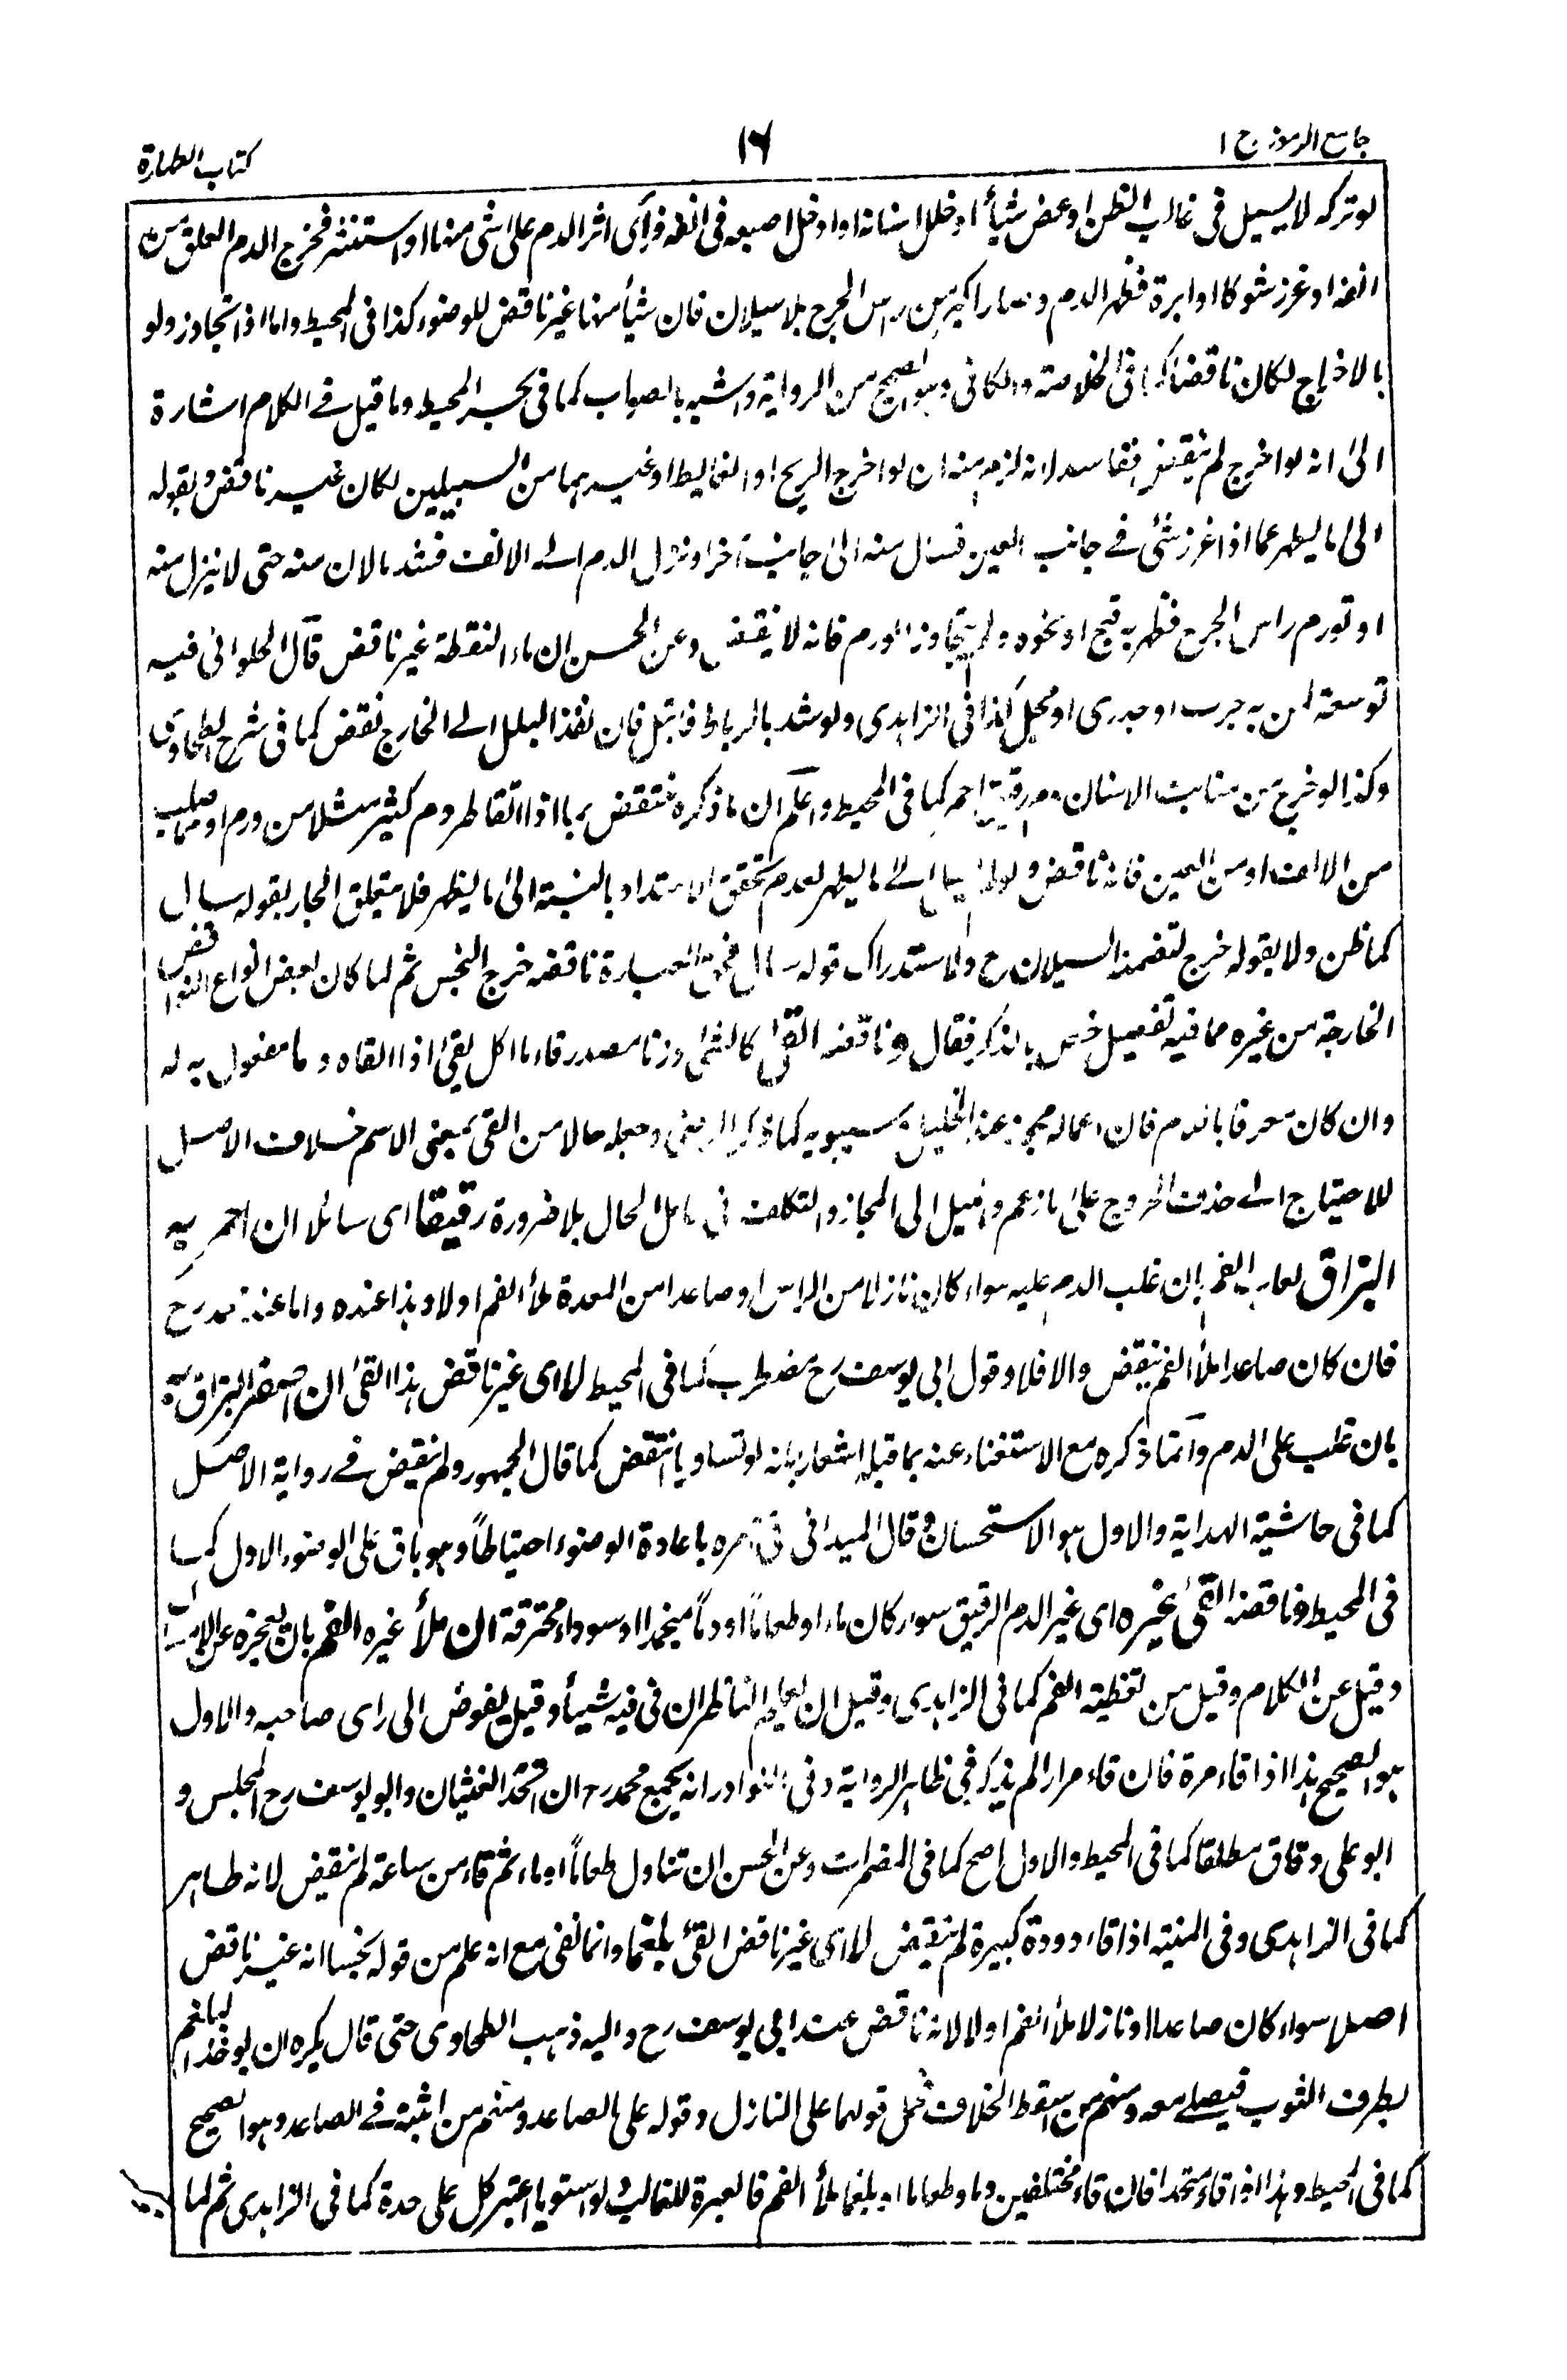 جامع الرموز ج ١
١٦
كتاب الطهارة
لو تركه لا يسيل فى غالب الظن او عض شيأ او خلل اسنانه او ادخل اصبعه فى انفه فرأى اثر الدم على شئ منها او استنثر فخرج الدم العلق من
انفه او غرز شوكا او ابرة فظهر الدم وصار اكبر من راس الجرح بلا سيلان فان شيأ منها غير ناقض للوضوء كذا فى المحيط واما اذا تجاوز ولو
بالاخراج لكان ناقضا كما فى الخلاصة والكافى وهو الصحيح من الرواية واشبه بالصواب كما فى بحر المحيط وما قيل فى الكلام اشارة
الى انه لو اخرج لم ينقض ففاسد لانه لزم منه ان لو اخرج الريح او الغايط او غيرهما من السبيلين لكان غير ناقض وبقوله
الى ما يطهر عما اذا غرز شئ فى جانب العين فسال منه الى جانب آخر او نزل الدم الى الانف فشد مالان منه حتى لا ينزل منه
او تورم راس الجرح فظهر به قيح او نحوه ولم يتجاوز الورم فانه لا ينقض وعن الحسن ان ماء النقطة غير ناقض قال الحلوانى فيه
توسعة لمن به جرب او جدرى او مجل كذا فى الزاهدى ولو شد بالرباط فابتل فان نفذ البلل الى الخارج نقض كما فى شرح الطحاوى
وكذا لو خرج من منابت الاسنان دم رقيق احمر كما فى المحيط واعلم ان ما ذكره منتقض بما اذا تقاطر دم كثير مثلا من ورم او صماخ
من الانف او من العين فانه ناقض ولو لم يسل الى ما يطهر لعدم تحقق الامتداد بالنسبة الى ما يطهر فلا يتعلق الجار بقوله سال
كما ظن ولا بقوله خرج لتضمنه السيلان ح ولاستدراك قوله سال فحق العبارة ناقضه خرج النجس ثم لما كان لبعض انواع النواقض
الخارجة من غيره مما فيه تفصيل خص بالذكر فقال و ناقضه القئ كالشئ وزنا مصدر قاء ما اكل يقئ اذا القاه و ما مفعول به له
وان كان معرفا باللام فان اعماله مجوز عند الخليل وسيبويه كما ذكر الرضى وجعله حالا من القئ بمعنى الاسم خلاف الاصل
للاحتياج الى حذف الخروج على ما زعم والميل الى المجاز والتكلف فى عامل الحال بلا ضرورة رقيقا اى سائلا ان احمر به
البزاق لعاب الفم بان غلب الدم عليه سواء كان نازلا من الراس او صاعدا من المعدة ملأ الفم او لا وهذا عنده واما عند محمد رح
فان كان صاعدا ملأ الفم ينقض والا فلا وقول ابى يوسف رح مضطرب كما فى المحيط لا اى غير ناقض هذا القئ ان اصفر البزاق به
بان غلب على الدم وانما ذكره مع الاستغناء عنه بما قبله اشعار بانه لو تساويا انتقض كما قال الجمهور ولم ينقض فى رواية الاصل
كما فى حاشية الهداية والاول هو الاستحسان وقال الميدانى باعادة الوضوء احتياطا وهو باق على الوضوء الاول كما
فى المحيط و ناقضه القئ غيره اى غير الدم الرقيق سواء كان ماء او طعاما او دما منجمدا او سوداء محترقة ان ملأ غيره الفم بان يعجزه عن الامساك
وقيل عن الكلام وقيل من تغطية الفم كما فى الزاهدى وقيل ان يعلم الناظر ان فى فيه شيأ وقيل يفوض الى راى صاحبه والاول
هو الصحيح هذا اذا قاء مرة فان قاء مرارا لم يذكر فى ظاهر الرواية وفى النوادر انه يجمع محمد رح ان اتحد الغثيان وابو يوسف رح المجلس و
ابو على دقاق مطلقا كما فى المحيط والاول اصح كما فى المضمرات وعن الحسن ان تناول طعاما او ماء ثم قاء من ساعة لم ينقض لانه طاهر
كما فى الزاهدى وفى المنية اذا قاء دودة كبيرة لم ينقض لا اى غير ناقض القئ بلغما وانما نفى مع انه علم من قوله نجسا انه غير ناقض
اصلا سواء كان صاعدا او نازلا ملأ الفم او لا لانه ناقض عند ابى يوسف رح واليه ذهب الطحاوى حتى قال يكره ان يوخذ البلغم
بطرف الثوب فيصلى معه ومنهم من اسقط الخلاف فحمل قولهما على النازل وقوله على الصاعد ومنهم من اثبته فى الصاعد وهو الصحيح
كما فى المحيط وهذا اذا قاء متحدا فان قاء مختلفين دما وطعاما او بلغما ملأ الفم فالعبرة للغالب ولو استويا اعتبر كل على حدة كما فى الزاهدى ثم لما